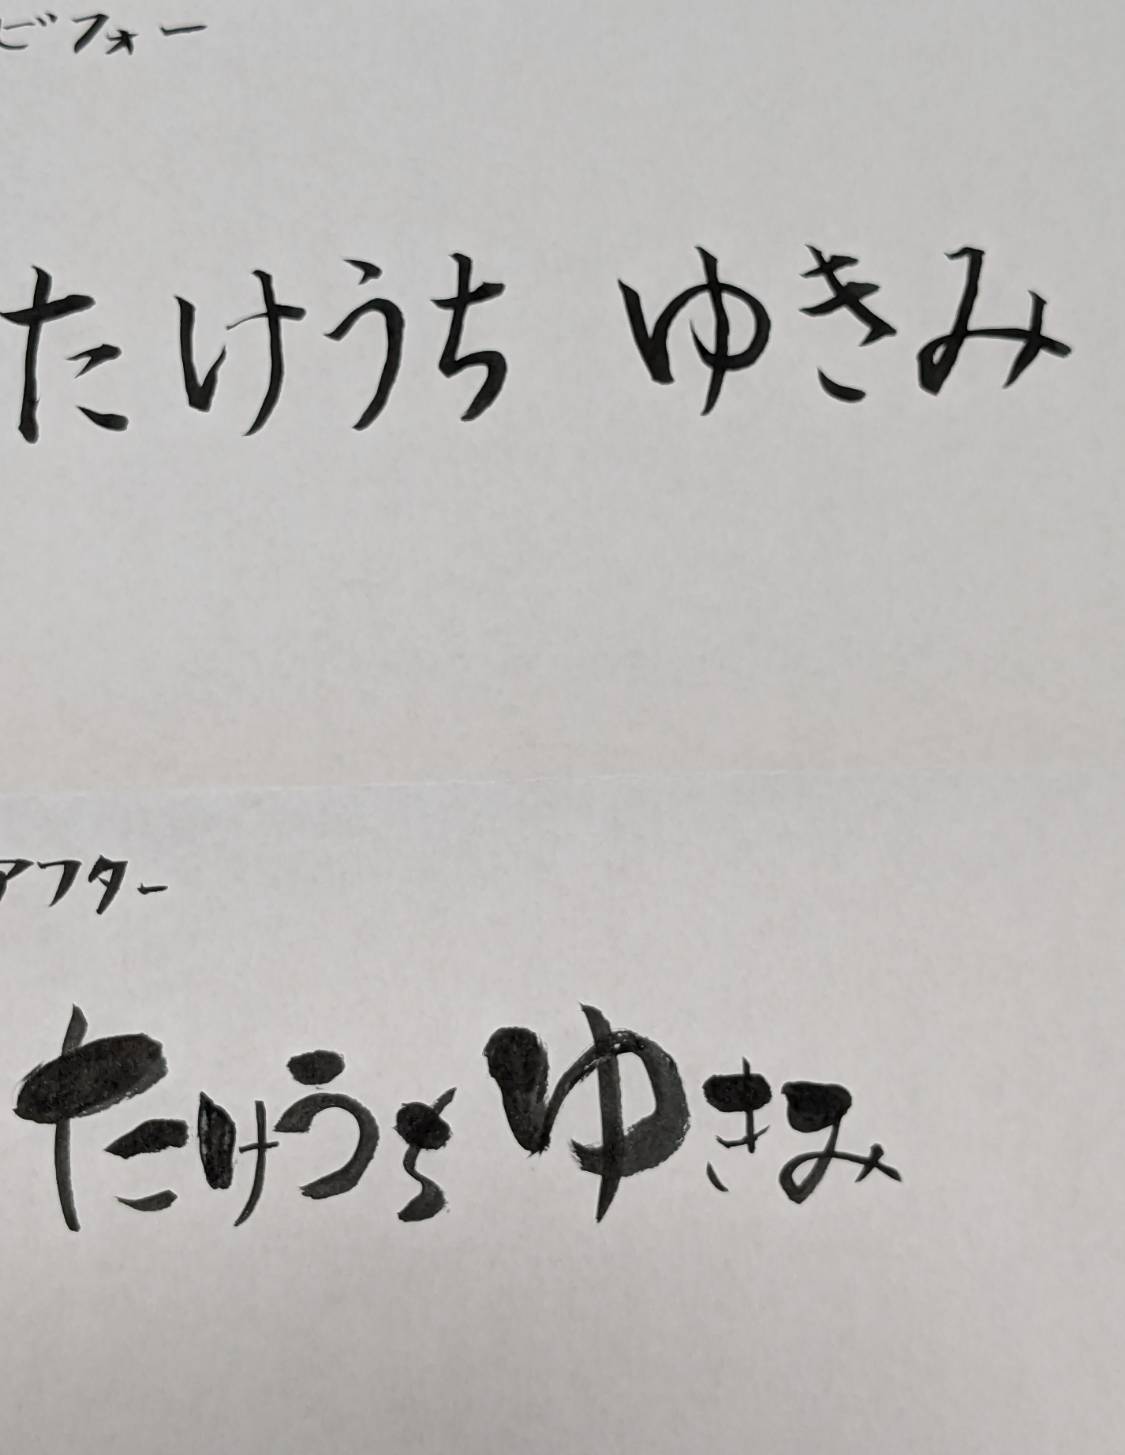 ビフォー
たけうち ゆきみ
アフター
たけうち ゆきみ